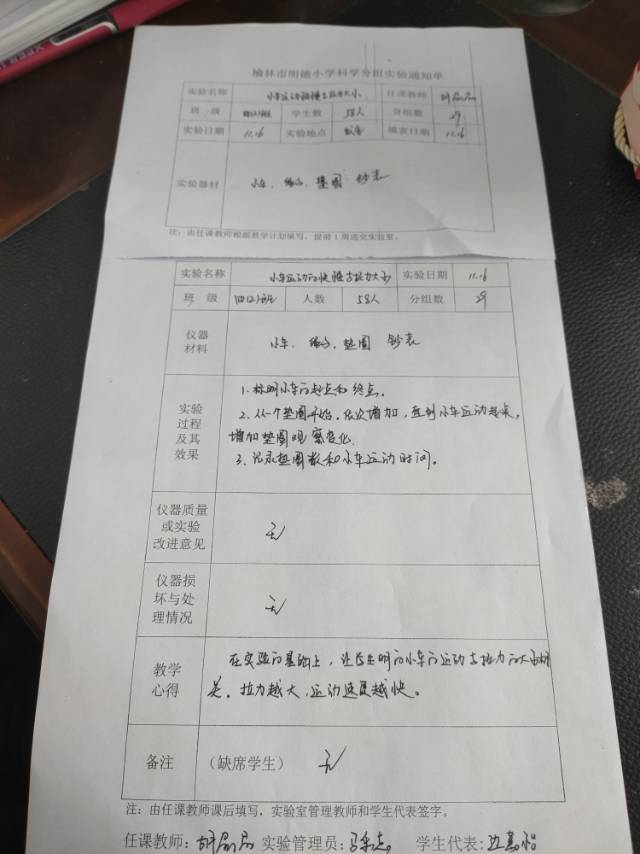 榆林市明德小学科学分组实验通知单
实验名称 小车运动的快慢与拉力大小 任课教师
班 级 学生数 58人 分组数 29
实验日期 11.16 实验地点 填表日期 11.16
实验器材 小车、绳子、垫圈 钞表
注：由任课教师根据教学计划填写，提前1周送交实验室。
实验名称 小车运动的快慢与拉力大小 实验日期 11.16
班 级 四(2)班 人数 58人 分组数 29
仪器
材料
小车、绳子、垫圈 钞表
实验
过程
及其
效果
1、标明小车的起点和终点。
2、从一个垫圈开始，依次增加，直到小车运动起来，
增加垫圈观察变化
3、记录垫圈数和小车运动时间。
仪器质量
或实验
改进意见
无
仪器损
坏与处
理情况
无
教学
心得
在实验的基础上，让学生明白小车的运动与拉力的大小有
关，拉力越大，运动速度越快。
备注 （缺席学生） 无
注：由任课教师课后填写，实验室管理教师和学生代表签字。
任课教师: 实验管理员: 学生代表: